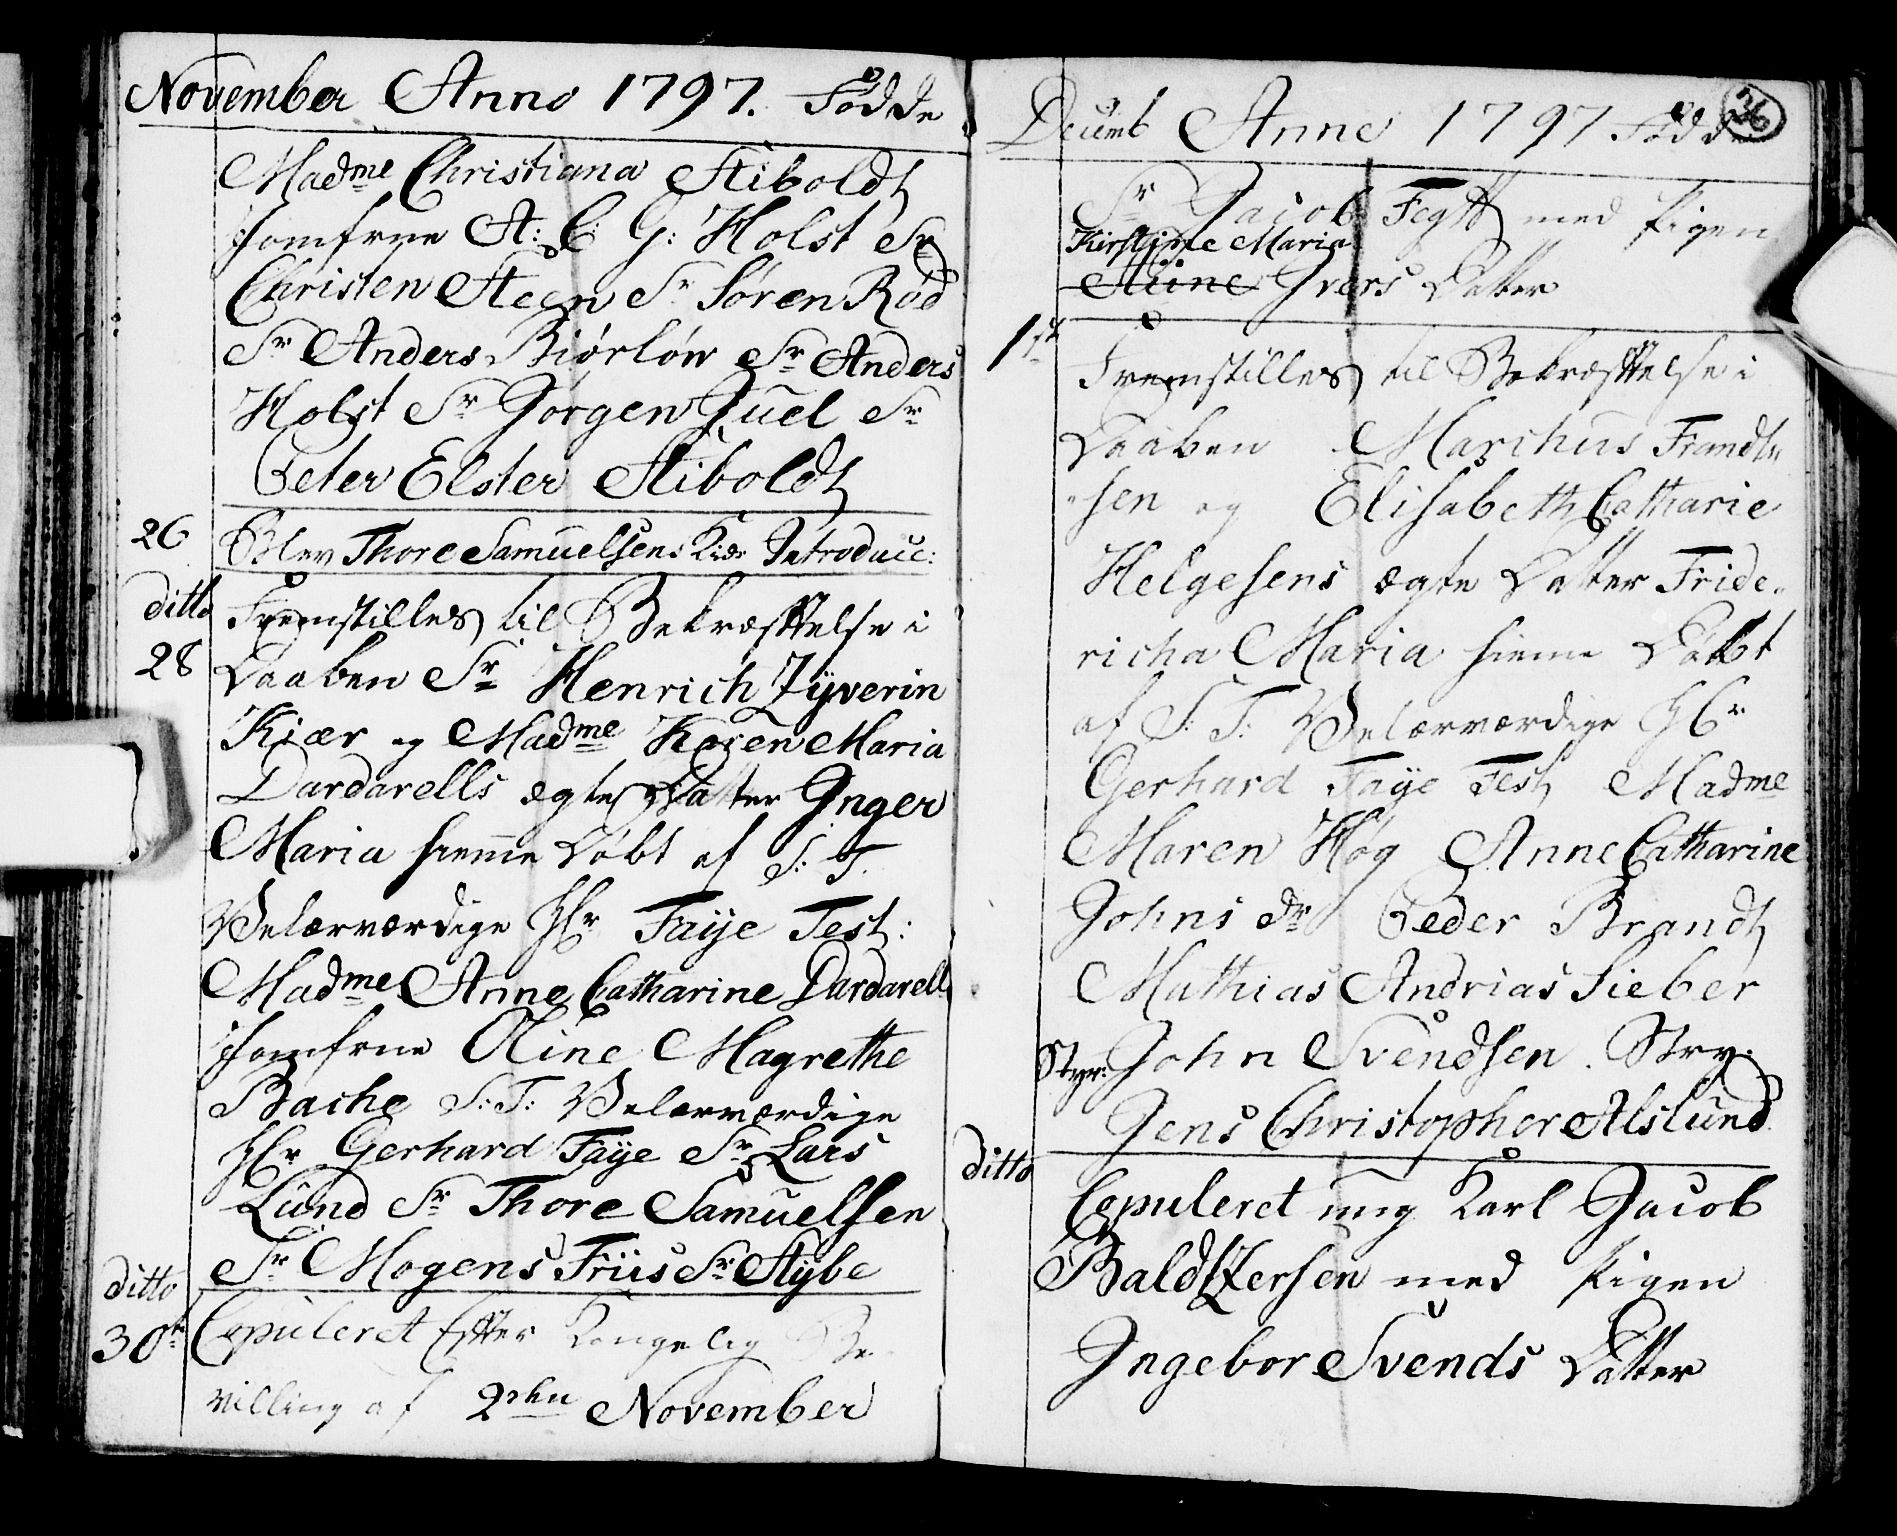 November Anno 1797. Födde
Madme Christiana Stiboldt
Jomfrue A: C: G: Holst Sr
Christen Steen Sr Søren Rød
Sr Anders Biørløw Sr Anders
Holst Sr Jørgen Juel Sr
Peter Elster Stiboldt
26 Blev Thore Samuelsens Kiær Introduce:
ditto Fremstilles til Bekræftelse i
28 Daaben Sr Henrich Zÿverin
Kiær og Madme Karen Maria
Dardarells ægte Datter Inger
Maria hieme Døbt af S: T.
Velærværdige Hr Faÿe Test:
Madme Anne Catharine Dardarell
Jomfrue Oline Magrethe
Bache S: T: Velærværdige
Hr Gerhard Faÿe Sr Lars
Lund Sr Thore Samuelsen
Sr Mogens Friis Sr Stÿbe
ditto
30te Copuleret Efter Kongelig Be
villing af 2den November
Decemb Anno 1797 Född
36
Sr Jacob med Pigen
Kirstine Maria
Stine Ivers Datter
1st Fremstilles til Bekræftelse i
Daaben Marchus Frandt
sen og Elisabeth Catharie
Helgesens ægte Datter Fride
richa Maria hieme Døbt
af S: T: Velærværdige Hr
Gerhard Faÿe Test Madme
Maren Høg Anne Catharine
Johns Dr Peder Brandt
Mathias Andrias Sieber
Styr: John Svendsen. Styr.
Jens Christopher Alslund
ditto
Copuleret ung Karl Jacob
Baldtzersen med Pigen
Ingebor Svends Datter